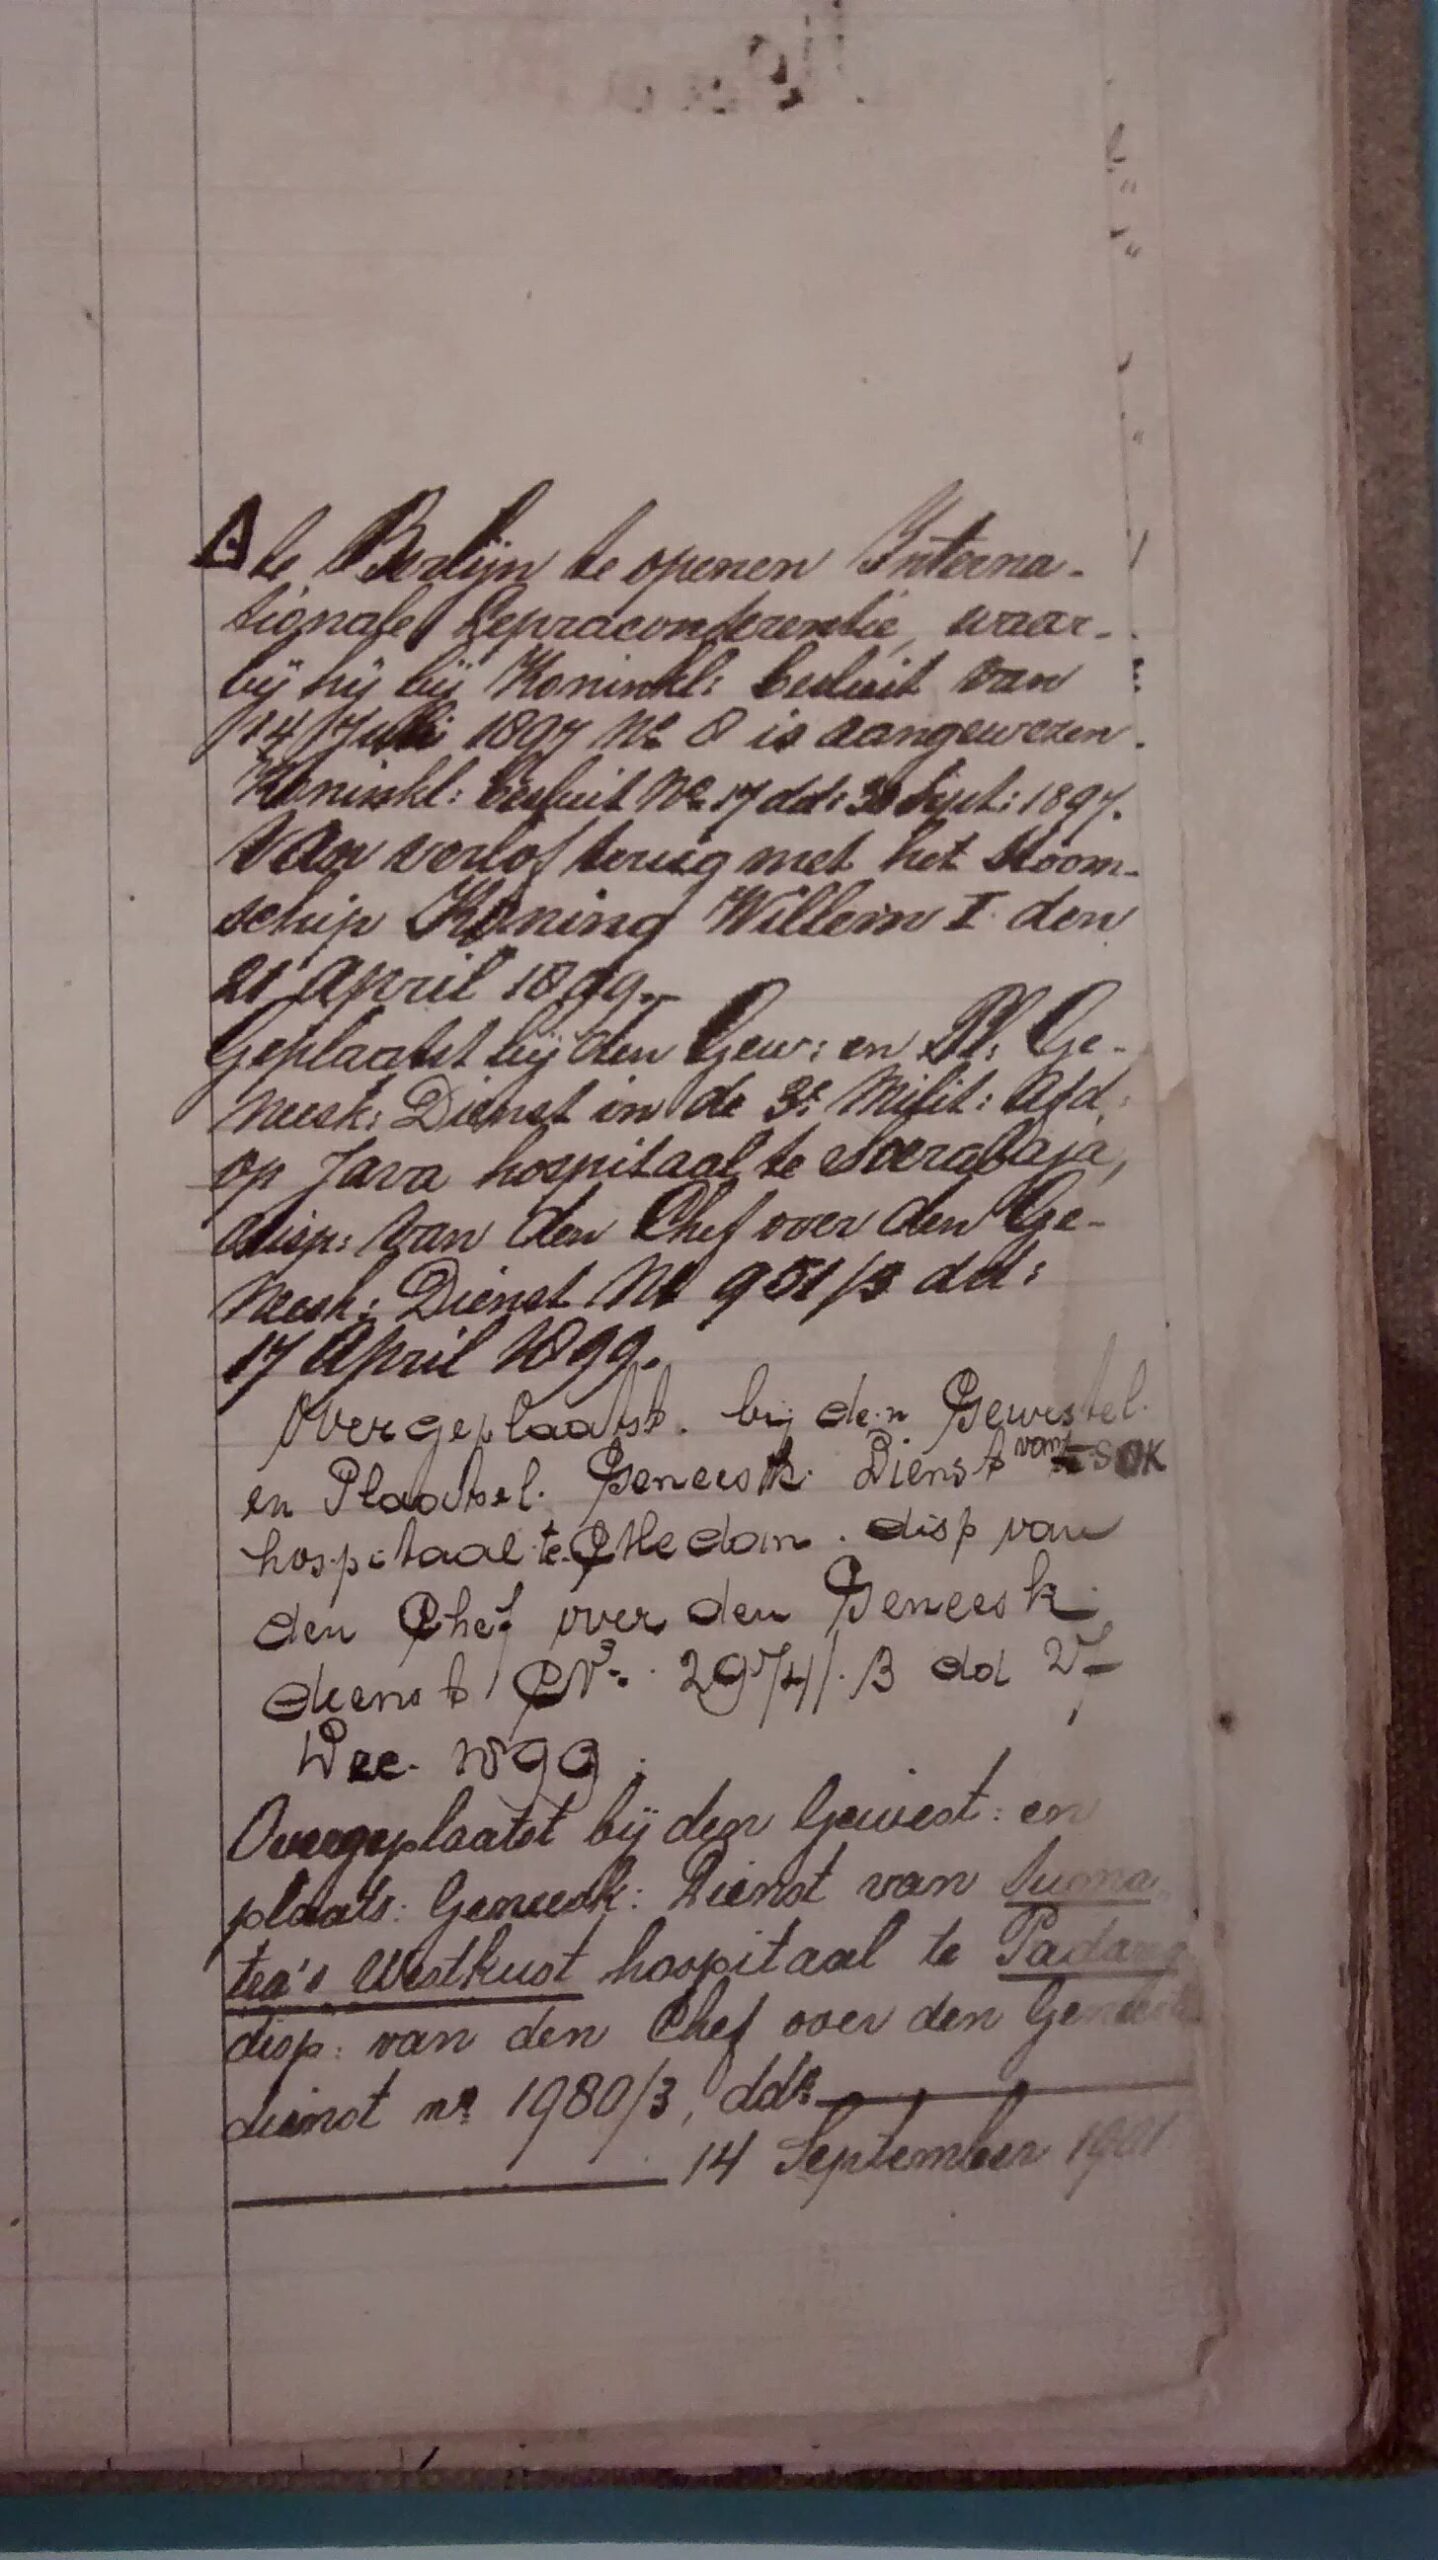 te Berlijn te openen Interna-
tionale Lepraconferentie, waar-
bij hij bij Koninkl: besluit van
14 Juli 1897 No 8 is aangewezen.
Koninkl: besluit No 17 dd: 30 Sept: 1897.
Van verlof terug met het stoom-
schip Koning Willem I den
21 April 1899.
Geplaatst bij den Gew: en Pl: Ge-
neesk: Dienst in de 3e Milit: Afd:
op Java hospitaal te Soerabaja,
disp: van den Chef over den Ge-
neesk: Dienst No 951/3 dd:
17 April 1899.
Overgeplaatst. bij den Gewestel.
en Plaatsel. Geneesk. Dienst van SOK
hospitaal te Medan. disp van
den Chef over den Geneesk.
dienst No. 2974/3 dd 27
Dec. 1899.
Overgeplaatst bij den Gewest: en
plaats: Geneesk: Dienst van Suma-
tra's Westkust hospitaal te Padang
disp: van den Chef over den Geneesk
dienst no 1980/3, dd:
14 September 1901